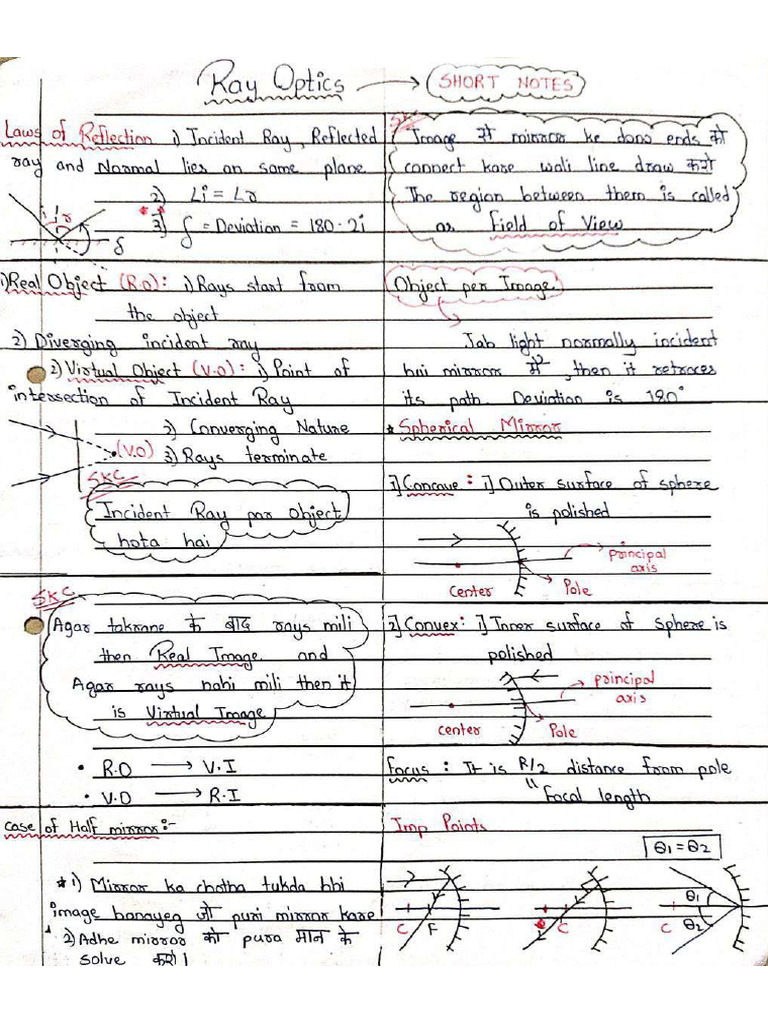 Ray Optics → SHORT NOTES
Laws of Reflection i) Incident Ray, Reflected
ray and Normal lies on same plane
2) ∠i = ∠r
3) δ = Deviation = 180-2i
i r
δ
SKC
Image से mirror ke dono ends को
connect kare wali line draw करो
The region between them is called
as Field of View
1) Real Object (R.O): i) Rays start from
the object
2) Diverging incident ray
2) Virtual Object (V.O): i) Point of
intersection of Incident Ray
2) Converging Nature
3) Rays terminate
(V.O)
SKC
Incident Ray par Object
hota hai
Object per Image
Jab light normally incident
hui mirror में, then it retraces
its path. Deviation is 180°
* Spherical Mirror
1] Concave : i] Outer surface of sphere
is polished
principal
axis
center
Pole
SKC
Agar takrane के बाद rays mili
then Real Image and
Agar rays nahi mili then it
is Virtual Image
• R.O → V.I
• V.O → R.I
2] Convex: i] Inner surface of sphere is
polished
principal
axis
center
Pole
focus : It is R/2 distance from pole
" Focal length
case of Half mirror:-
* 1) Mirror ka chotha tukda bhi
image banayeg जो puri mirror kare
2) Adhe mirror को pura मान के
solve करो।
Imp Points
θ1 = θ2
C F
C
C θ1
θ2